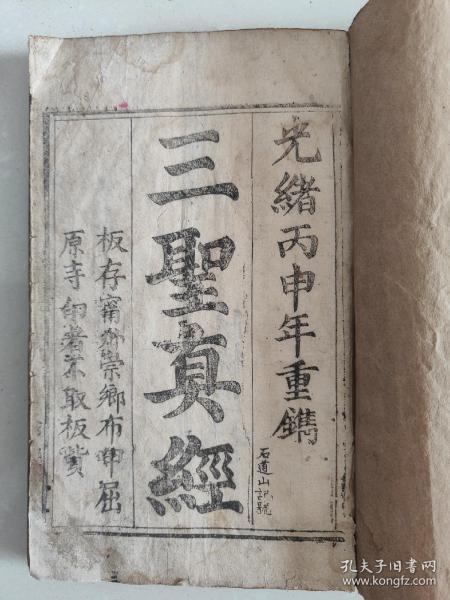 光緒丙申年重鐫
石道山記號
三聖真經
板存甯外崇鄉布申屈
原寺印者不取板貲
孔夫子旧书网
www.kongfz.com